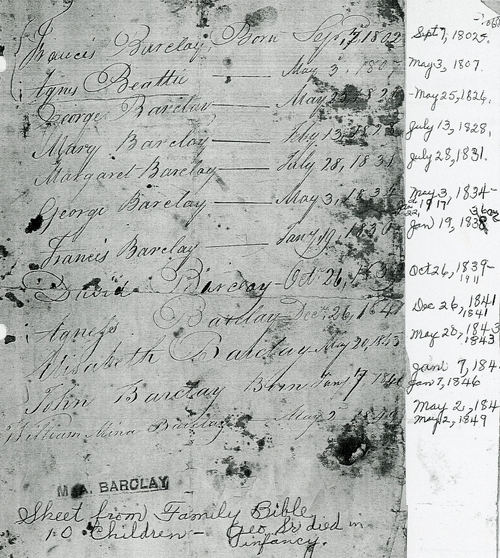 Francis Barclay Born Sept, 7, 1802 Sept 7, 1802.
Agnes Beattie — May 3, 1807 May 3, 1807.
George Barclay — May 25, 1826 - May 25, 1826.
Mary Barclay — July 13, 1828 July 13, 1828,
Margaret Barclay — July 28, 1831 July 28, 1831.
George Barclay — May 3, 1834 May 3, 1834-
1917
Francis Barclay — Jany 19, 183 Jan 19, 183
David Barclay - Oct. 26, 1839 Oct 26, 1839-
1911
Agness Barclay Dec. 26, 1841 Dec 26, 1841
1841
Elisabeth Barclay May 20, 1843 May 20, 1843
1843
John Barclay Born Jan, 7 1846 Jan 7, 184
Jan 7, 1846
William Barclay — May 2 1849 May 2, 184
May 2, 1849
M. A. BARCLAY
Sheet from Family Bible,
10 Children - Geo. Sr died in
infancy.